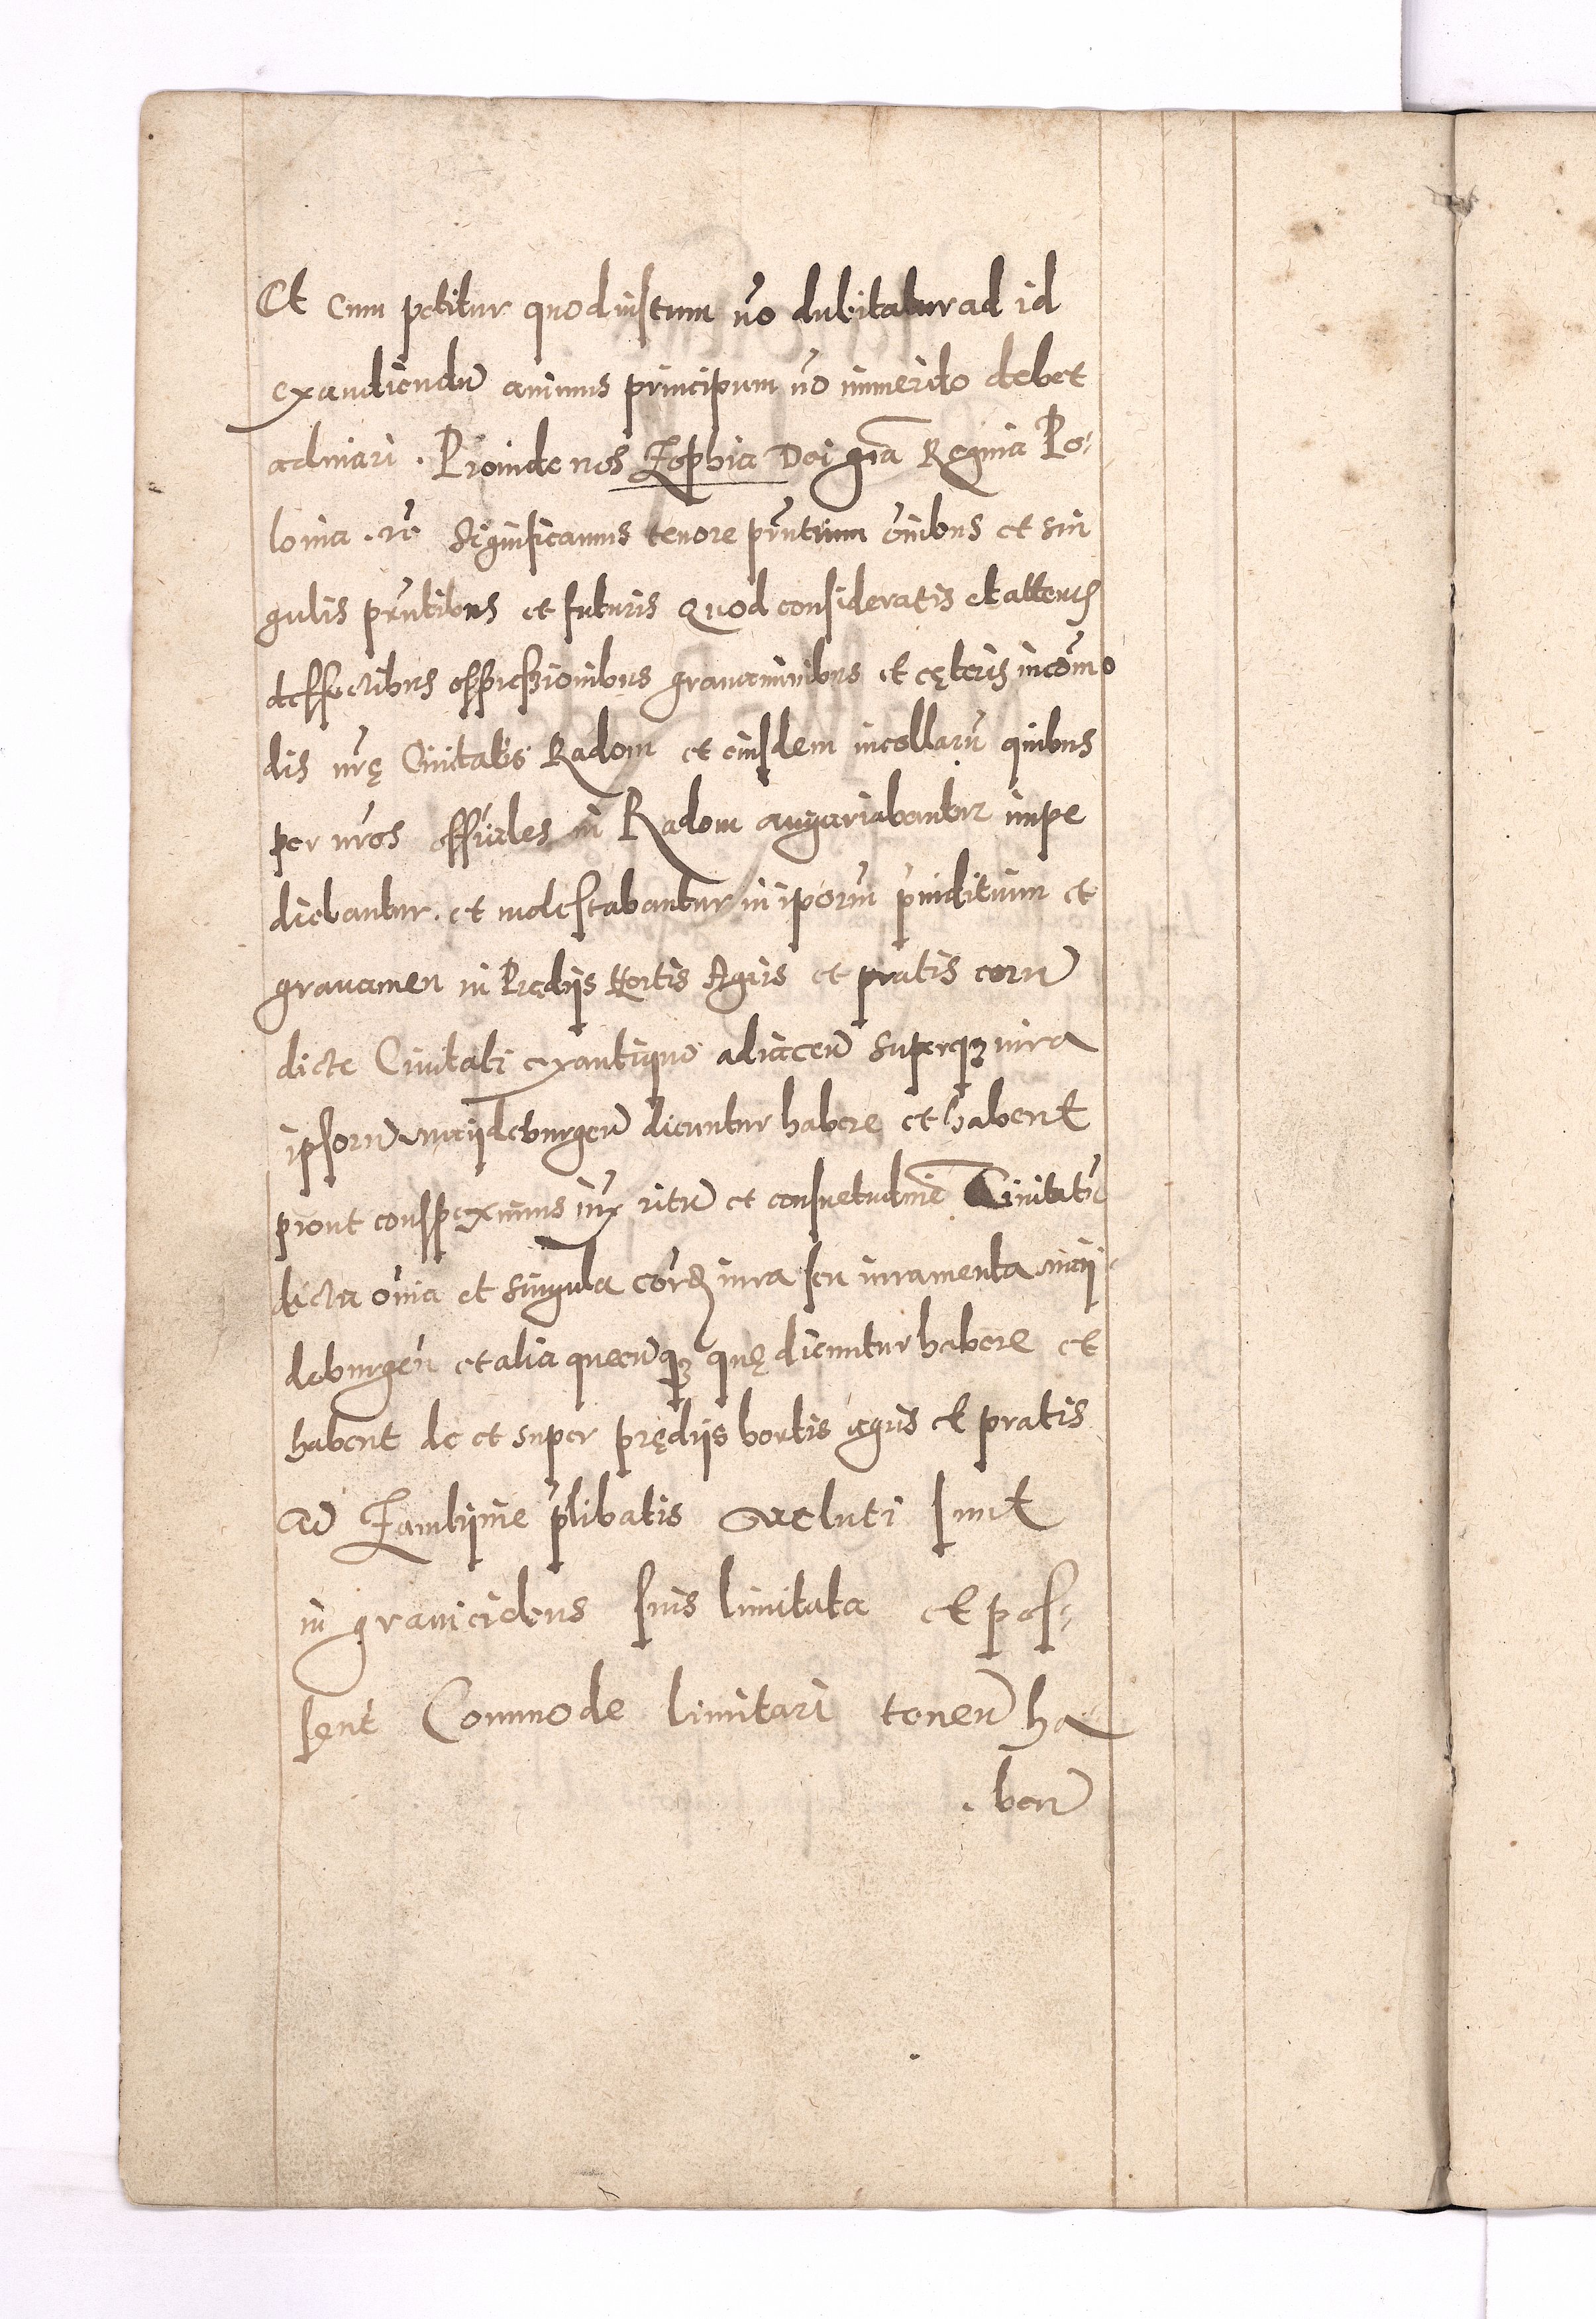 Et Cum petitur quod iustum nō dubitatur ad id
exaudiendū animus principum nō immerito debet
admari. Proinde nos Zophia Dei gra͞ Regina Po⸗
lonia. rē Significamus tenore prn̄tium ōnibus et sin
gulis prn̄tibus et futuris Quod consideratis et attentis
deffectibus oppressionibus grauaminibus et cęteris incōmo
dis nrę̄ Ciuitatis Radom et eiusdem incollarū quibus
per nrōs offiāles in Radom angariabantur impe
diebantur. et molestabantur in ip̄orum p̄iuditium et
grauamen in Prędijs Hortis Agris et pratis eorū
dicte Ciuitati exantiquo adiaceñ Superqȝ iura
ipsorū maijdeburgeñ dicuntur habere et habent
prout conspeximus iux̄ ritū et consuetudinē Ciuitatū
dicta om̄ia et singula eorꝝ iura seu iuramenta maij
deburgeñ et alia quecūqȝ quę dicuntur habere et
habent de et super prędijs hortis agris et pratis
Ad Zamlijnie p̄libatis veluti sunt
in graniciebus suis limitata et pos⸗
sent Commode limitari teneñ ha
beñ